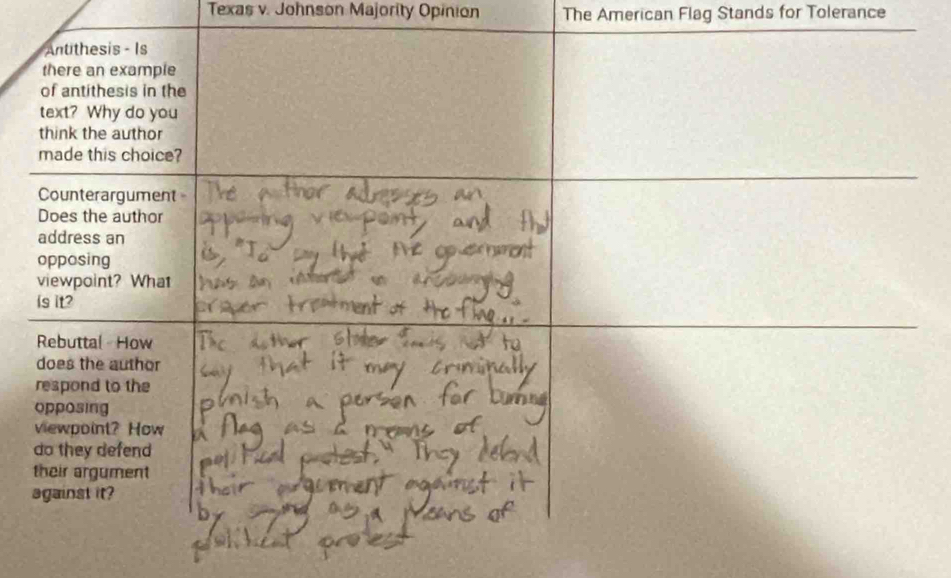 Texas v. Johnson Majority Opinion
The American Flag Stands for Tolerance
Antithesis - Is
there an example
of antithesis in the
text? Why do you
think the author
made this choice?
Counterargument -
Does the author
address an
opposing
viewpoint? What
is it?
The author adresses an
opposing viewpoint, and that
is, "To say that the government
has an interest in encouraging
proper treatment of the flag..."
Rebuttal - How
does the author
respond to the
opposing
viewpoint? How
do they defend
their argument
against it?
The author not to
say that it may criminally
punish a person for burning
a flag as a means of
political protest." They defend
their argument against it
by as a means of
political protest